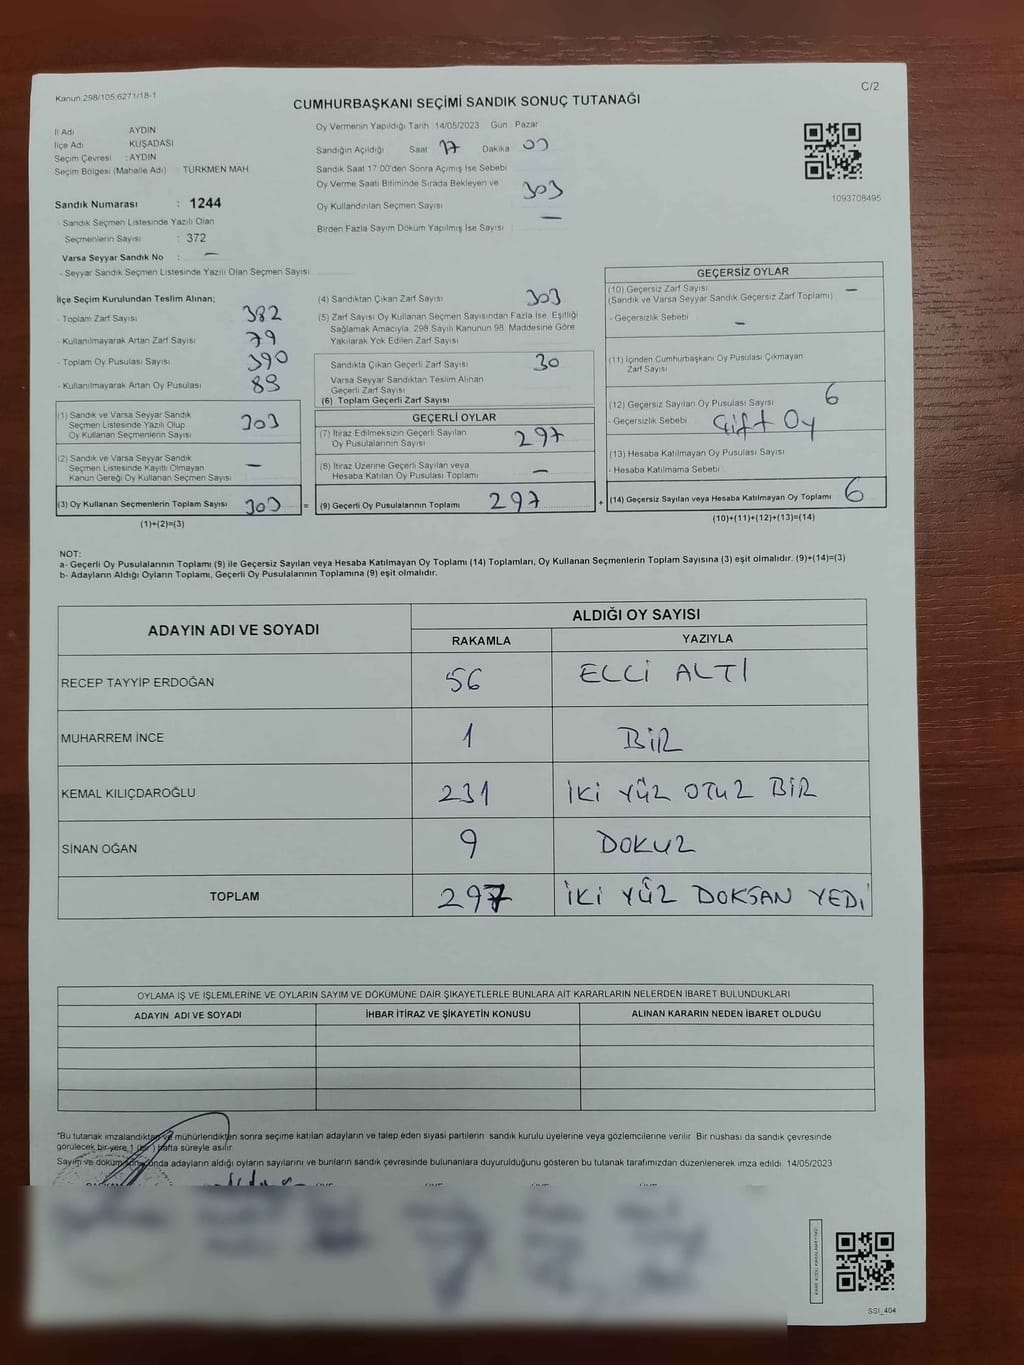 Kanun 298/105;6271/18-1
C/2
CUMHURBAŞKANI SEÇİMİ SANDIK SONUÇ TUTANAĞI
İl Adı AYDIN
İlçe Adı KUŞADASI
Seçim Çevresi : AYDIN
Seçim Bölgesi (Mahalle Adı) : TÜRKMEN MAH
Sandık Numarası : 1244
- Sandık Seçmen Listesinde Yazılı Olan
Seçmenlerin Sayısı : 372
Varsa Seyyar Sandık No : —
- Seyyar Sandık Seçmen Listesinde Yazılı Olan Seçmen Sayısı
Oy Vermenin Yapıldığı Tarih :14/05/2023 Gün : Pazar
Sandığın Açıldığı Saat 17 Dakika 00
Sandık Saat 17:00'den Sonra Açımış İse Sebebi
Oy Verme Saati Bitiminde Sırada Bekleyen ve
Oy Kullandırılan Seçmen Sayısı 303
Birden Fazla Sayım Döküm Yapılmış İse Sayısı : —
1093708495
İlçe Seçim Kurulundan Teslim Alınan;
- Toplam Zarf Sayısı 382
- Kullanılmayarak Artan Zarf Sayısı 79
- Toplam Oy Pusulası Sayısı 390
- Kullanılmayarak Artan Oy Pusulası 89
(1) Sandık ve Varsa Seyyar Sandık
Seçmen Listesinde Yazılı Olup
Oy Kullanan Seçmenlerin Sayısı 303
(2) Sandık ve Varsa Seyyar Sandık
Seçmen Listesinde Kayıtlı Olmayan
Kanun Gereği Oy Kullanan Seçmen Sayısı —
(3) Oy Kullanan Seçmenlerin Toplam Sayısı 303 =
(1)+(2)=(3)
(4) Sandıktan Çıkan Zarf Sayısı 303
(5) Zarf Sayısı Oy Kullanan Seçmen Sayısından Fazla İse, Eşitliği
Sağlamak Amacıyla, 298 Sayılı Kanunun 98. Maddesine Göre
Yakılarak Yok Edilen Zarf Sayısı
Sandıkta Çıkan Geçerli Zarf Sayısı 30
Varsa Seyyar Sandıktan Teslim Alınan
Geçerli Zarf Sayısı
(6) Toplam Geçerli Zarf Sayısı
GEÇERLİ OYLAR
(7) İtiraz Edilmeksizin Geçerli Sayılan
Oy Pusulalarının Sayısı 297
(8) İtiraz Üzerine Geçerli Sayılan veya
Hesaba Katılan Oy Pusulası Toplamı —
(9) Geçerli Oy Pusulalarının Toplamı 297 +
GEÇERSİZ OYLAR
(10) Geçersiz Zarf Sayısı —
(Sandık ve Varsa Seyyar Sandık Geçersiz Zarf Toplamı)
- Geçersizlik Sebebi —
(11) İçinden Cumhurbaşkanı Oy Pusulası Çıkmayan
Zarf Sayısı
(12) Geçersiz Sayılan Oy Pusulası Sayısı 6
- Geçersizlik Sebebi Çift Oy
(13) Hesaba Katılmayan Oy Pusulası Sayısı
- Hesaba Katılmama Sebebi
(14) Geçersiz Sayılan veya Hesaba Katılmayan Oy Toplamı 6
(10)+(11)+(12)+(13)=(14)
NOT:
a- Geçerli Oy Pusulalarının Toplamı (9) ile Geçersiz Sayılan veya Hesaba Katılmayan Oy Toplamı (14) Toplamları, Oy Kullanan Seçmenlerin Toplam Sayısına (3) eşit olmalıdır. (9)+(14)=(3)
b- Adayların Aldığı Oyların Toplamı, Geçerli Oy Pusulalarının Toplamına (9) eşit olmalıdır.
ADAYIN ADI VE SOYADI ALDIĞI OY SAYISI
RAKAMLA YAZIYLA
RECEP TAYYİP ERDOĞAN 56 ELLİ ALTI
MUHARREM İNCE 1 BİR
KEMAL KILIÇDAROĞLU 231 İKİ YÜZ OTUZ BİR
SİNAN OĞAN 9 DOKUZ
TOPLAM 297 İKİ YÜZ DOKSAN YEDİ
OYLAMA İŞ VE İŞLEMLERİNE VE OYLARIN SAYIM VE DÖKÜMÜNE DAİR ŞİKAYETLERLE BUNLARA AİT KARARLARIN NELERDEN İBARET BULUNDUKLARI
ADAYIN ADI VE SOYADI İHBAR İTİRAZ VE ŞİKAYETİN KONUSU ALINAN KARARIN NEDEN İBARET OLDUĞU
"Bu tutanak imzalandıktan ve mühürlendikten sonra seçime katılan adayların ve talep eden siyasi partilerin sandık kurulu üyelerine veya gözlemcilerine verilir. Bir nüshası da sandık çevresinde
görülecek bir yere 1 (bir) hafta süreyle asılır.
Sayım ve döküm sonunda adayların aldığı oyların sayılarını ve bunların sandık çevresinde bulunanlara duyurulduğunu gösteren bu tutanak tarafımızdan düzenlenerek imza edildi. 14/05/2023
SSİ_404